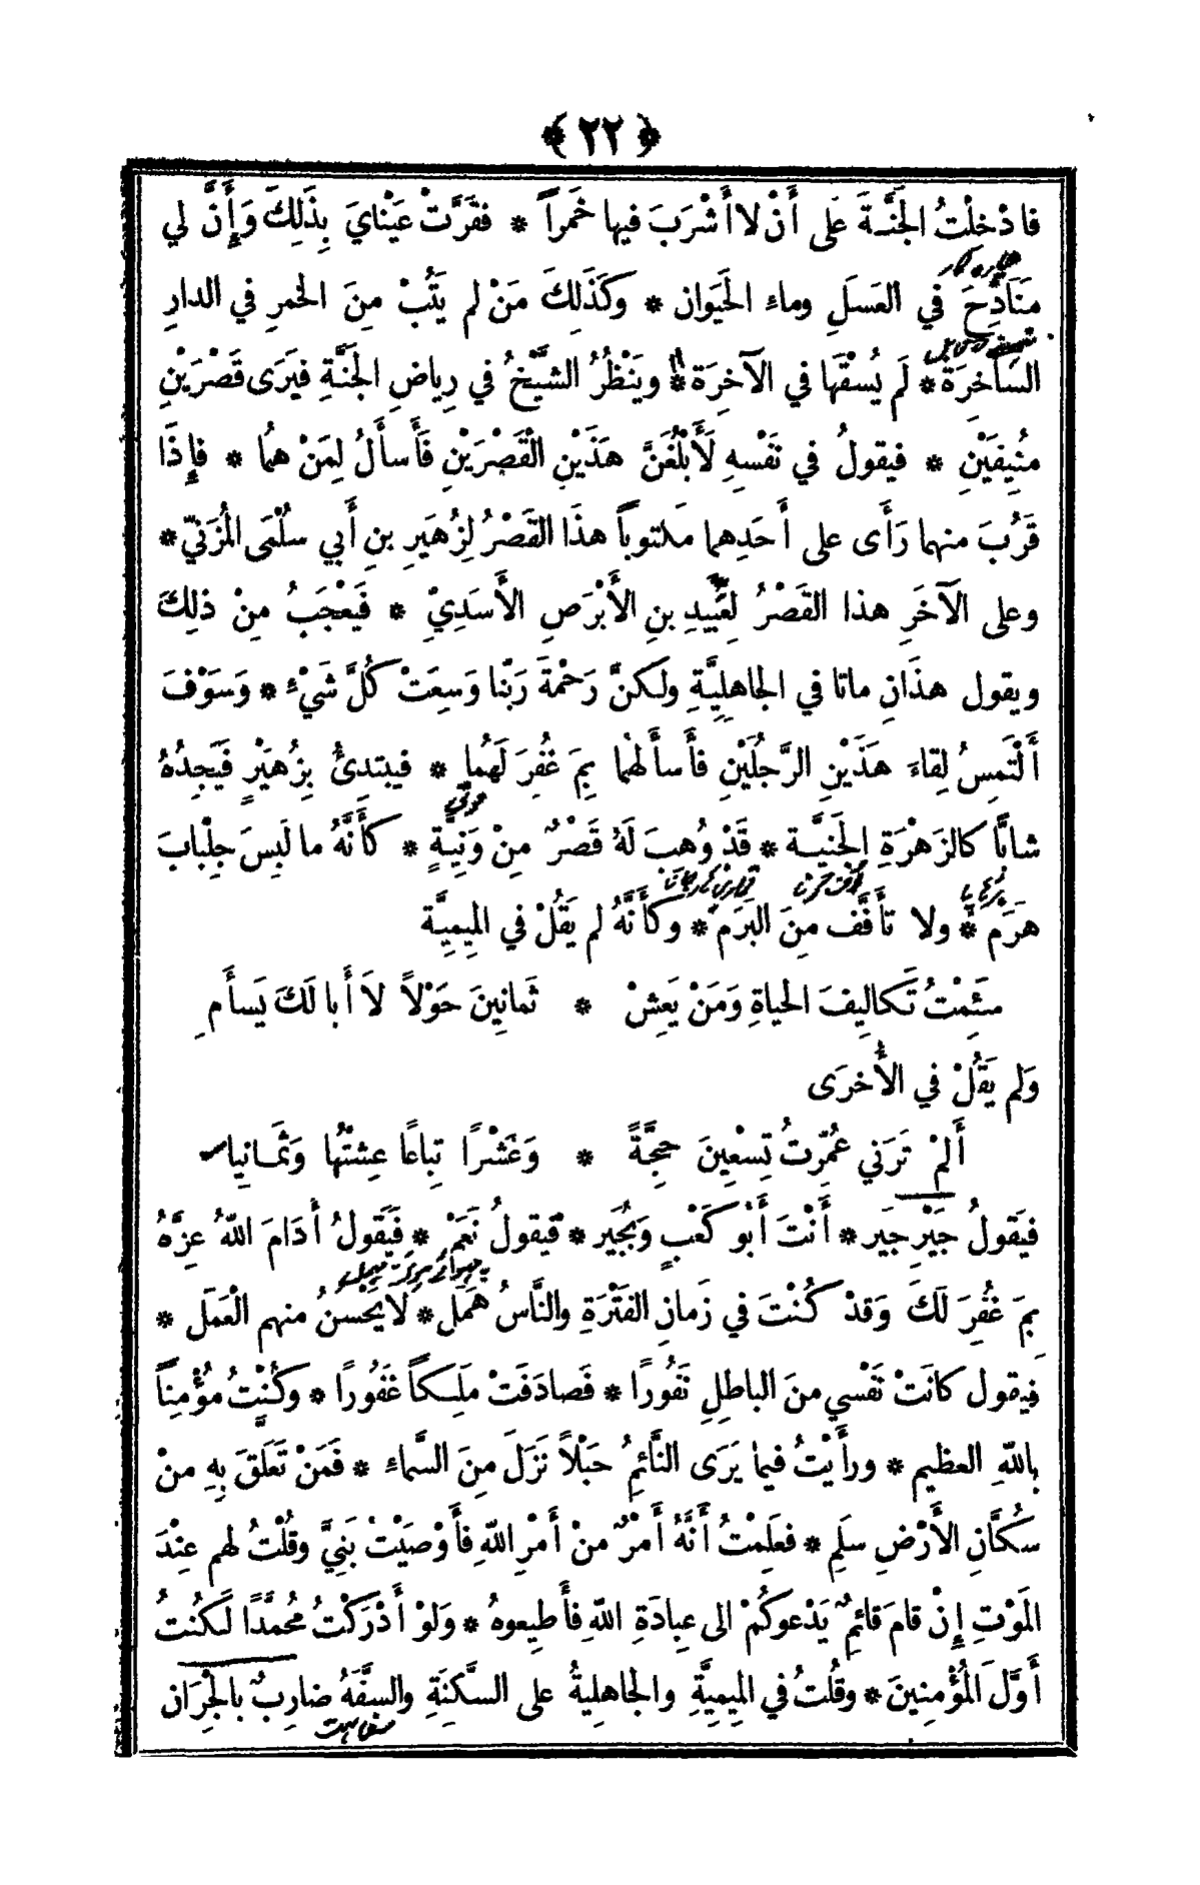 ﴿ ٢٢ ﴾
فادْخِلْتُ الجَنَّةَ عَلَى أَنْ لا أَشْرَبَ فيها خَمراً * فقَرَّتْ عَيْنايَ بِذَلِكَ وَإِنَّ لي
مَنَادِحَ في العَسَلِ وماءِ الحَيَوان * وكَذَلِكَ مَنْ لم يَتُبْ مِنَ الخمرِ في الدارِ
السَّاخِرَة * لَم يُسْقَها في الآخِرَة * وينْظُرُ الشَّيْخُ في رِياضِ الجَنَّةِ فيَرَى قَصْرَيْنِ
مُنِيفَيْنِ * فيقولُ في نَفْسِهِ لَأَبْلُغَنَّ هَذَيْنِ الْقَصْرَيْنِ فَأَسأَلُ لِمَنْ هُمَا * فإِذَا
قَرُبَ منهما رَأَى على أَحَدِهما مَكتوباً هذَا القَصْرُ لِزُهَيرِ بنِ أَبي سُلْمَى المُزَنيّ *
وعلى الآخَرِ هذا القَصْرُ لِعَبِيدِ بنِ الأَبْرَصِ الأَسَدِيْ * فَيَعْجَبُ مِنْ ذلِكَ
ويقول هذَانِ ماتا في الجاهِلِيَّةِ ولَكنَّ رَحْمَةَ رَبِّنا وَسِعَتْ كُلَّ شَيْءٍ * وَسَوْفَ
أَلْتَمِسُ لِقاءَ هَذَيْنِ الرَّجُلَيْنِ فأَسأَلهُما بِمَ غُفِرَ لَهُما * فيبتدِئُ بِزُهَيْرٍ فَيَجِدُهُ
شابًّا كالزَهْرَةِ الجَنِيَّة * قَدْ وُهِبَ لَهُ قَصْرٌ مِنْ وَنِيَّةٍ * كأَنَّهُ ما لَبِسَ جِلْبابَ
هَرَم * ولا تأَفَّفَ مِنَ البَرَم * وكأَنَّهُ لم يَقُلْ في المِيمِيَّة
سَئِمْتُ تَكالِيفَ الحياةِ وَمَنْ يَعِشْ * ثَمانِينَ حَوْلاً لاَ أَبا لَكَ يَسأَمِ
وَلم يَقُلْ في الأُخرَى
أَلمْ تَرَني عُمِّرتُ تِسْعِينَ حجَّةً * وَعَشْرًا تِباعًا عِشتُها وَثَمَانِيا
فيَقولُ جَيْرِ جَيرِ * أَنْتَ أَبُو كَعْبٍ وَبُجَير * فيقولُ نَعَمْ * فَيَقولُ أَدَامَ اللهُ عِزَّهُ
بِمَ غُفِرَ لَكَ وَقدْ كُنْتَ في زَمانِ الفَتْرَةِ والنَّاسُ هَمَل * لا يَحْسنُ منهم الْعَمَل *
فيقول كانَتْ نَفْسي منَ الباطِلِ نَفُورًا * فَصادَفَتْ مَلِكاً غَفُورًا * وكُنْتُ مؤْمِناً
باللهِ العظيم * ورأَيْتُ فيما يَرَى النَّائِمُ حَبْلاً نَزَلَ مِنَ السَّماءِ * فَمَنْ تَعَلَّقَ بِهِ منْ
سُكَّانِ الأَرْضِ سَلِم * فعَلِمْتُ أَنَّهُ أَمرٌ منْ أَمرِ اللهِ فأَوْصَيْتُ بَنِيَّ وقُلْتُ لهم عِنْدَ
المَوْتِ إِنْ قامَ قائِمٌ يَدْعوكُمْ الى عِبادَةِ اللهِ فأَطيعوهُ * وَلَوْ أَدْرَكْتُ مُحمَّدًا لَكُنتُ
أَوَّلَ المُؤْمِنِينَ * وقُلتُ في المِيمِيَّةِ والجاهِليةُ على السَّكِنَةِ والسَّفَهُ ضارِبٌ بالجِرَان